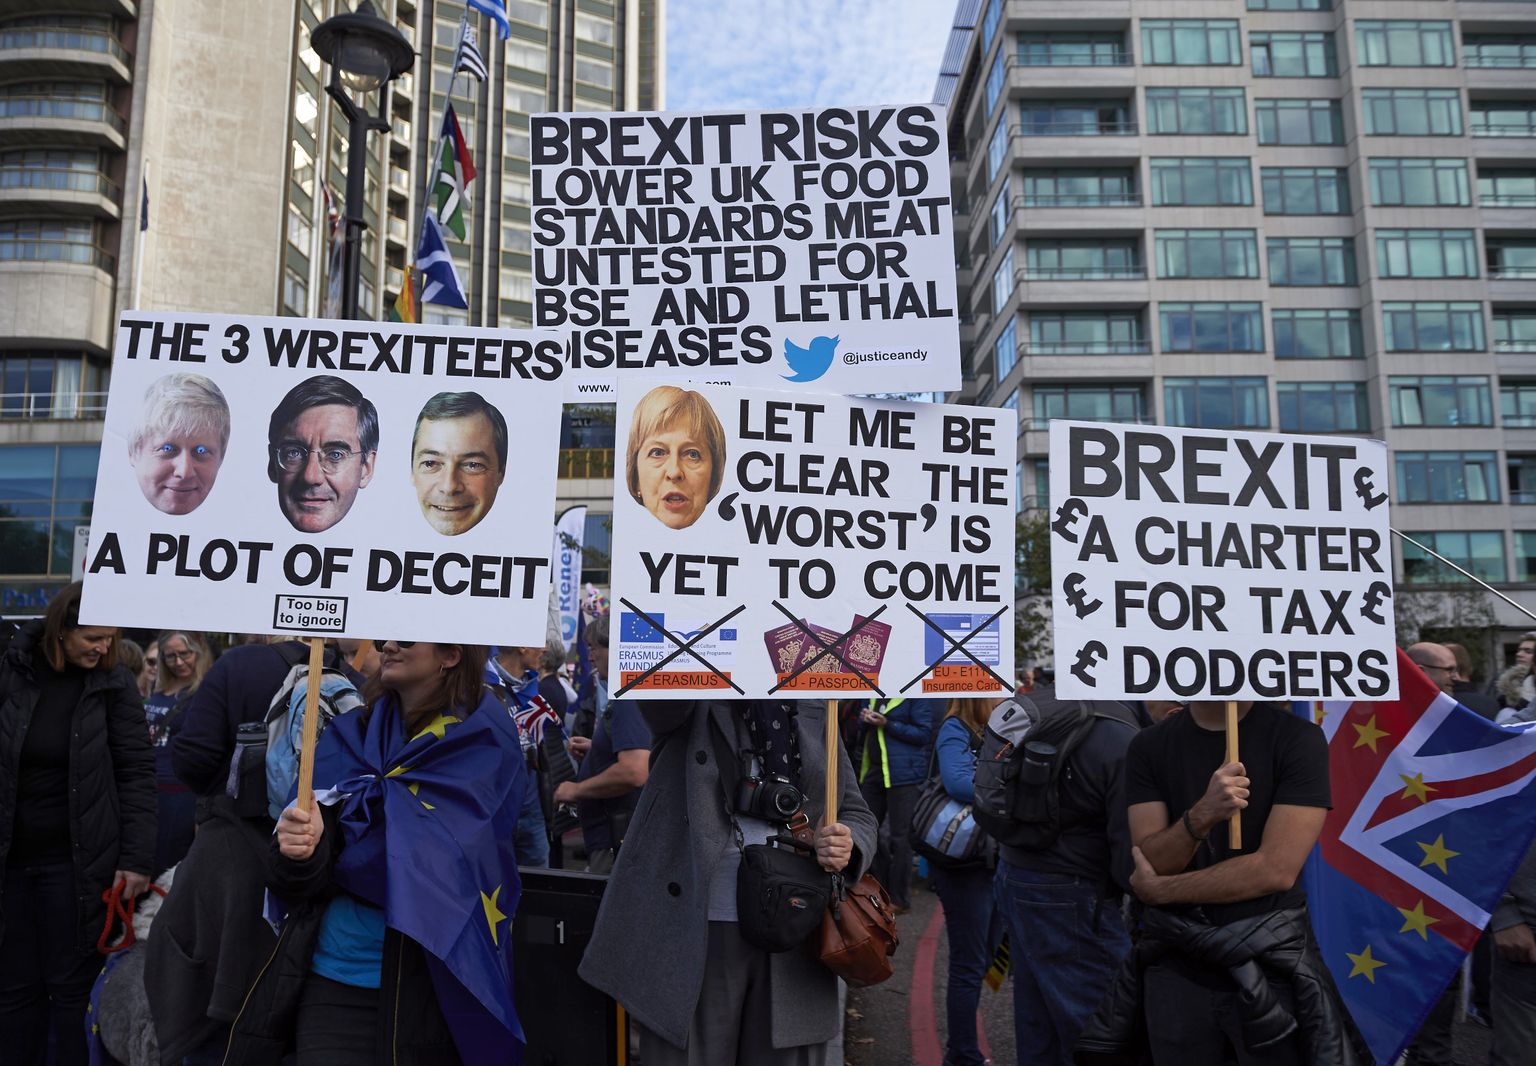 BREXIT RISKS
LOWER UK FOOD
STANDARDS MEAT
UNTESTED FOR
BSE AND LETHAL
DISEASES
@justiceandy
www.
THE 3 WREXITEERS
A PLOT OF DECEIT
Too big
to ignore
LET ME BE
CLEAR THE
'WORST' IS
YET TO COME
European Commission
ERASMUS
MUNDUS
EU- ERASMUS
EU - PASSPORT
EU - E111
Insurance Card
BREXIT £
£A CHARTER
£ FOR TAX £
£ DODGERS
Renew
Park
1